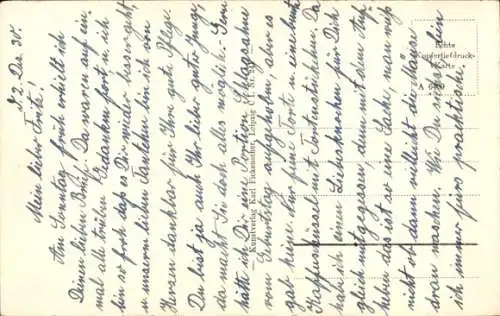 d. 2. Dez. 35.
Mein lieber Fritz!
Am Sonntag früh erhielt ich
Deinen lieben Brief. Da waren auf ein-
mal alle trüben Gedanken fort u. ich
bin so froh das es Dir wieder besser geht,
u. unserm lieben Tantchen bin ich von
Herzen dankbar für Ihre gute Pflege.
Du bist ja auch Ihr lieber guter Junge,
da macht Sie doch alles möglich. Gern
hätte ich Dir eine Portion Schlagsahne
vom Geburtstag aufgehoben, aber es
gab keine. Nur feine Torte u. eine bunte
Kaffeeschüssel mit Tortenstückchen. Da
hab ich einen Leberknochen für Dich
gleich mitgegessen, denn mit dem Auf-
heben das ist so eine Sache, man weiß
nicht ob dann vielleicht die Mäuse
dran naschen. Wie Du weißt, bin
ich immer fürs praktische.
Kunstverlag Karl Fickenscher, Leipzig C 1
Echte
Kupfertiefdruck-
Karte
A